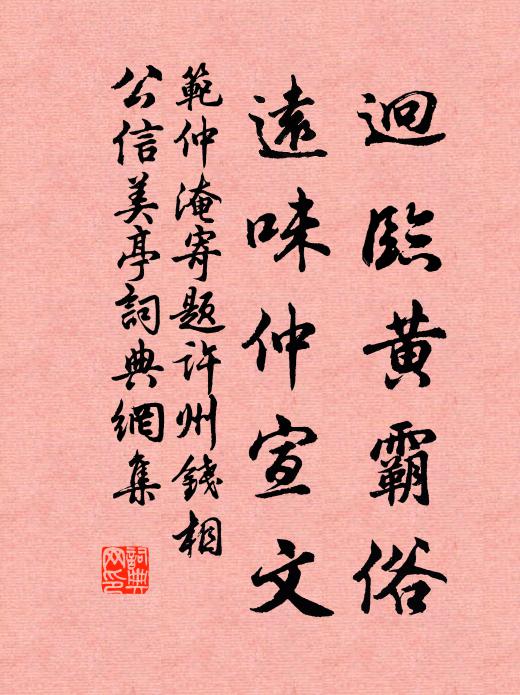 迴臨黃霸俗
遠味仲宣文
範仲淹寄題許州錢相
公信美亭詞典網集
詞典网印